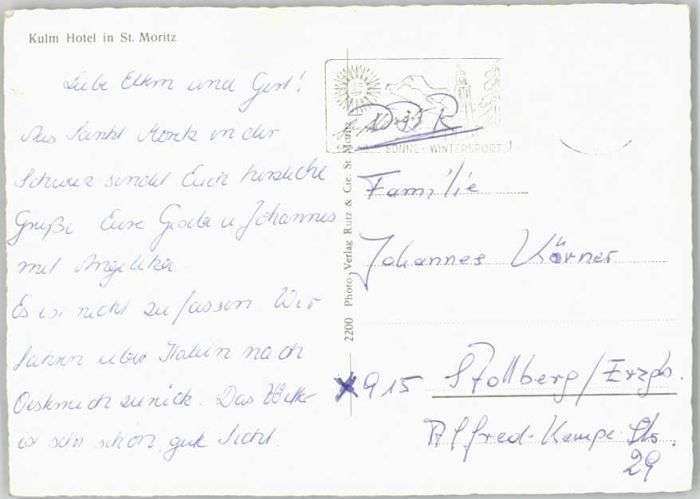 Kulm Hotel in St. Moritz
Liebe Eltern und Gert!
Aus Sankt Moritz in der
Schweiz sendet Euch herzliche
Grüße Eure Gisela u Johannes
mit Angelika.
Es ist nicht zu fassen. Wir
fahren über Italien nach
Oesterreich zurück. Das Wetter
ist sehr schön gute Sicht.
2200 Photo-Verlag Rutz & Cie. St. Moritz
SONNE - WINTERSPORT
DDR
Familie
Johannes Körner
x 915 Stollberg/Erzgb.
Alfred-Kempe Str.
29